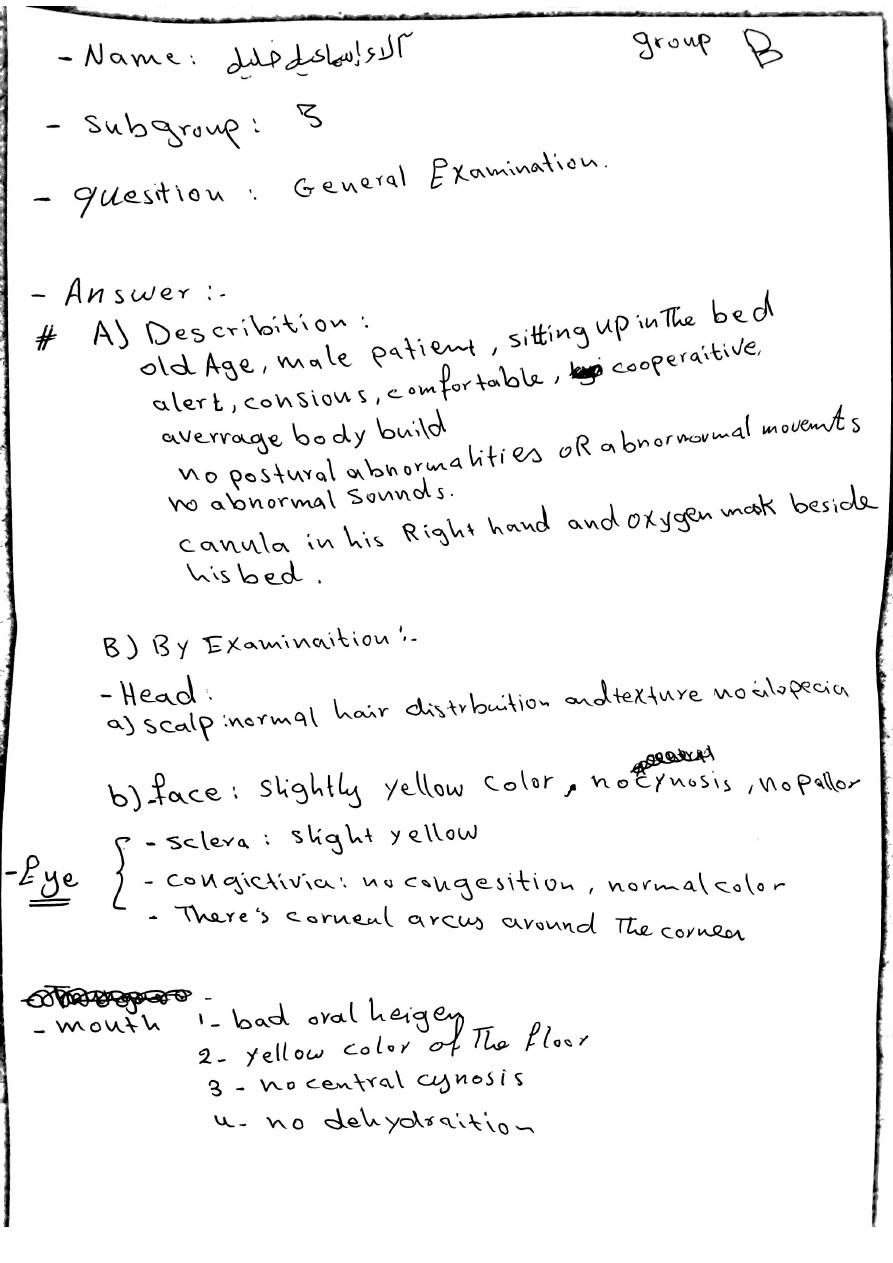 - Name: آلاء إسماعيل خليل group B
- subgroup: 3
- quesition : General Examination.
- Answer :-
# A) Describition :
old Age, male patient, sitting up in The bed
alert, consious, comfortable, cooperaitive,
averrage body build
no postural abnormalities OR abnormormal movemts
no abnormal sounds.
canula in his Right hand and oxygen mask beside
his bed.
B) By Examinaition :-
- Head:
a) scalp: normal hair distrbuition and texture no alopecia
b) face: slightly yellow color, no cynosis, no pallor
- sclera: slight yellow
- Eye
- congictivia: no congesition, normal color
- There's corneal arcus around The cornea
- mouth 1- bad oral heigen
2- yellow color of The floor
3 - no central cynosis
4- no dehydraition